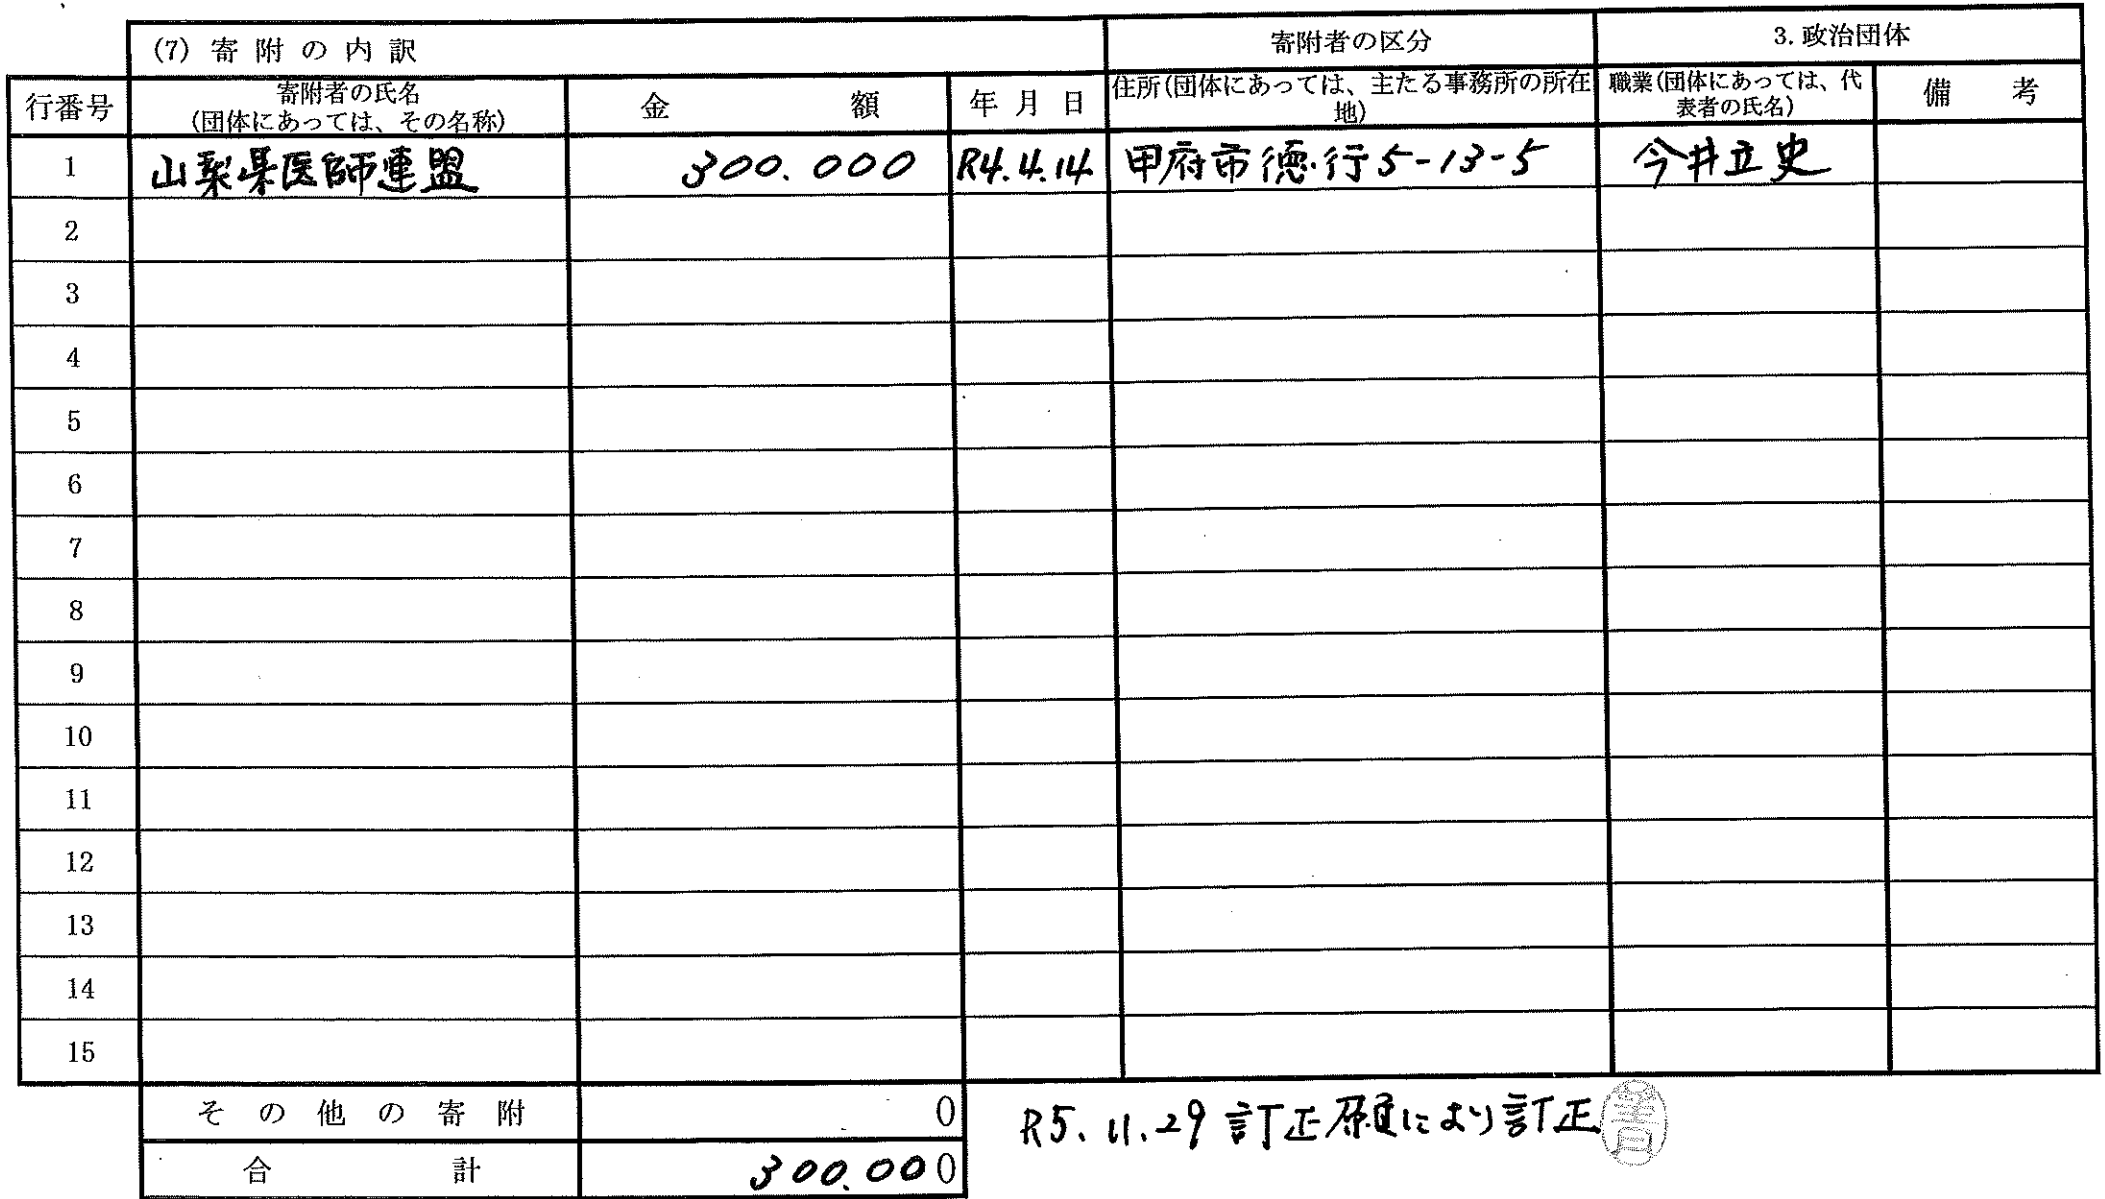 (7) 寄附の内訳 寄附者の区分 3.政治団体
行番号 寄附者の氏名 (団体にあっては、その名称) 金額 年月日 住所(団体にあっては、主たる事務所の所在地) 職業(団体にあっては、代表者の氏名) 備考
1 山梨県医師連盟 300.000 R4.4.14 甲府市徳行5-13-5 今井立史
2
3
4
5
6
7
8
9
10
11
12
13
14
15
その他の寄附 0
R5.11.29 訂正願により訂正
合計 300.000